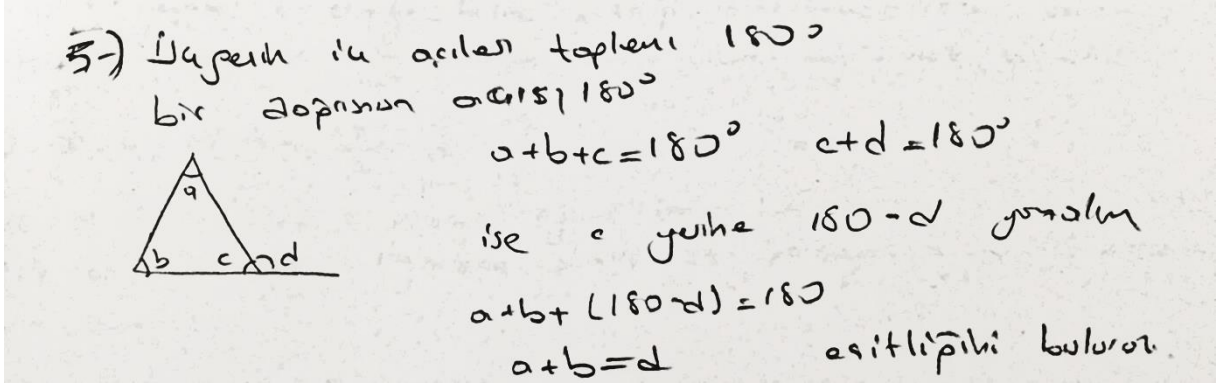 5-) Üçgenin iç açıları toplamı 180°
bir doğrunun açısı 180°
a+b+c=180° c+d=180°
a
b c d
ise c yerine 180-d yazalım
a+b+(180-d)=180
a+b=d eşitliğini buluruz.